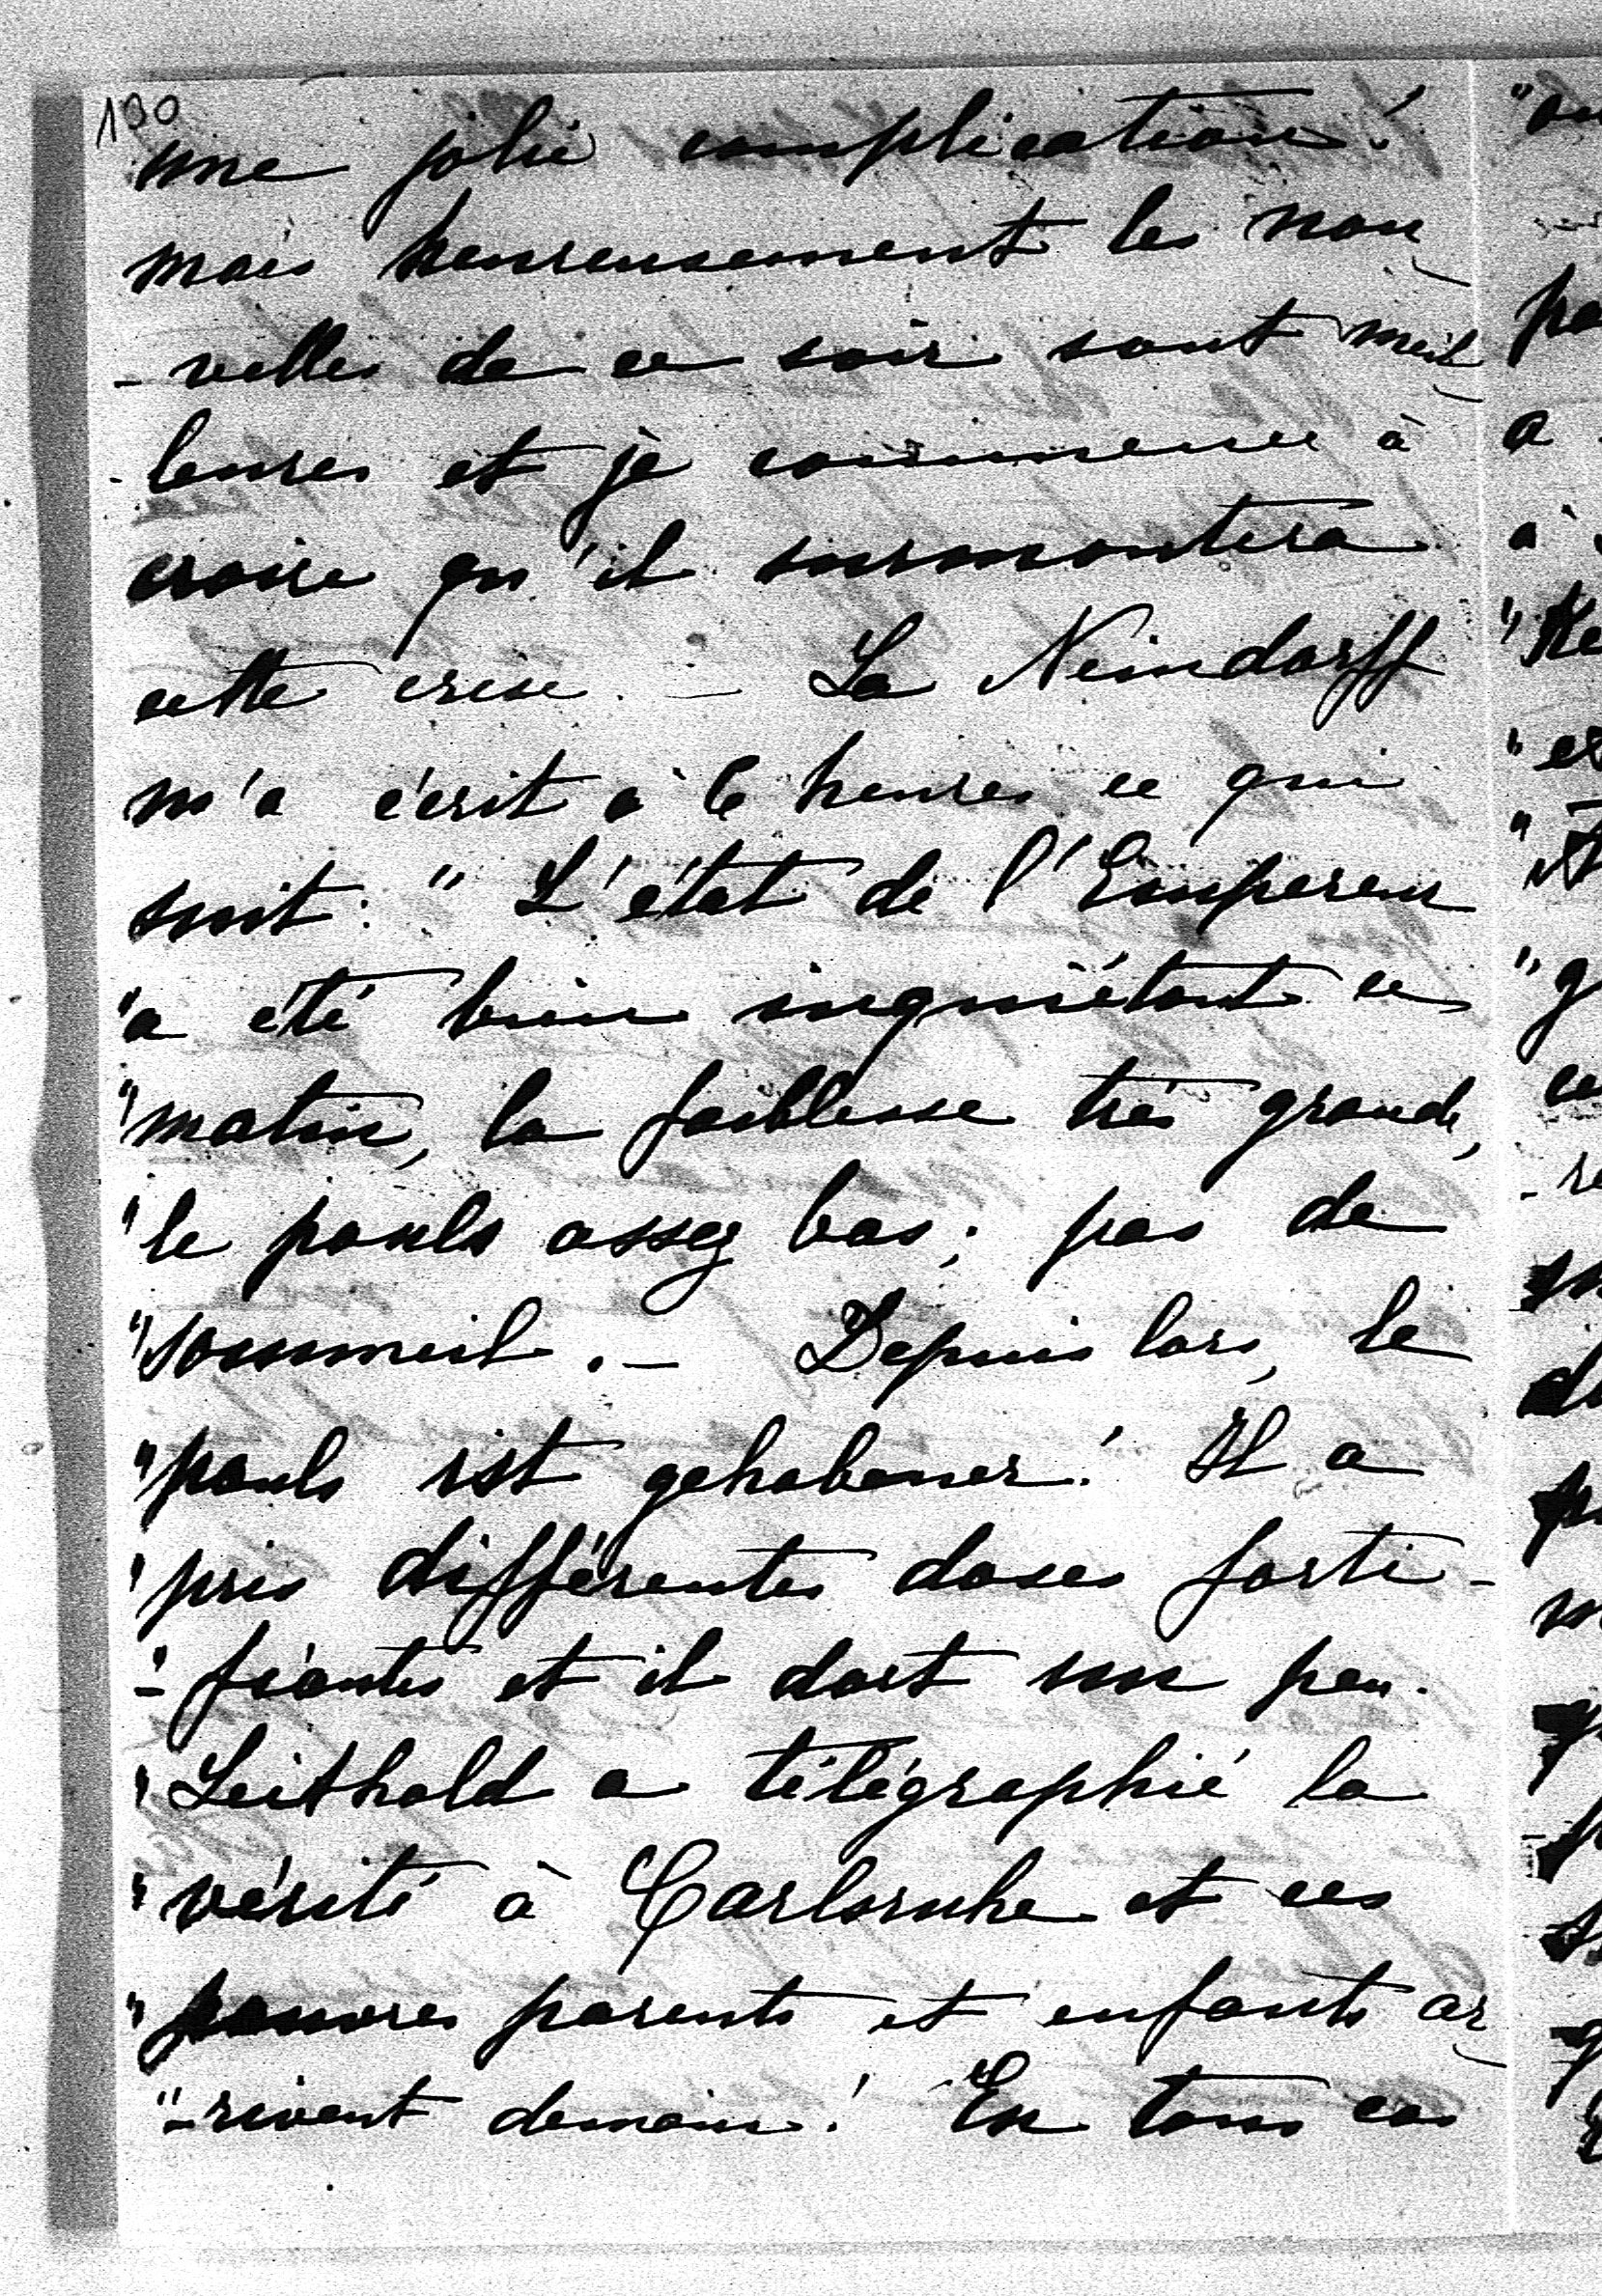 190
une jolie complication!
mais heureusement les nou-
-velles de ce soir sont meil-
-leures et je commence à
croire qu'il surmontera
cette crise. – La Neindorff
m'a écrit à 6 heures ce qui
suit: " L'état de l'Empereur
"a été bien inquiétant ce
"matin, la faiblesse très grande,
"le pouls assez bas; pas de
"sommeil. – Depuis lors, le
"pouls ist gehobener! Il a
"pris différentes doses forti-
"-fiantes et il dort un peu.
"Leithold a télégraphié la
"vérité à Carlsruhe et ces
"pauvres parents et enfants ar-
"-rivent demain! En tous cas